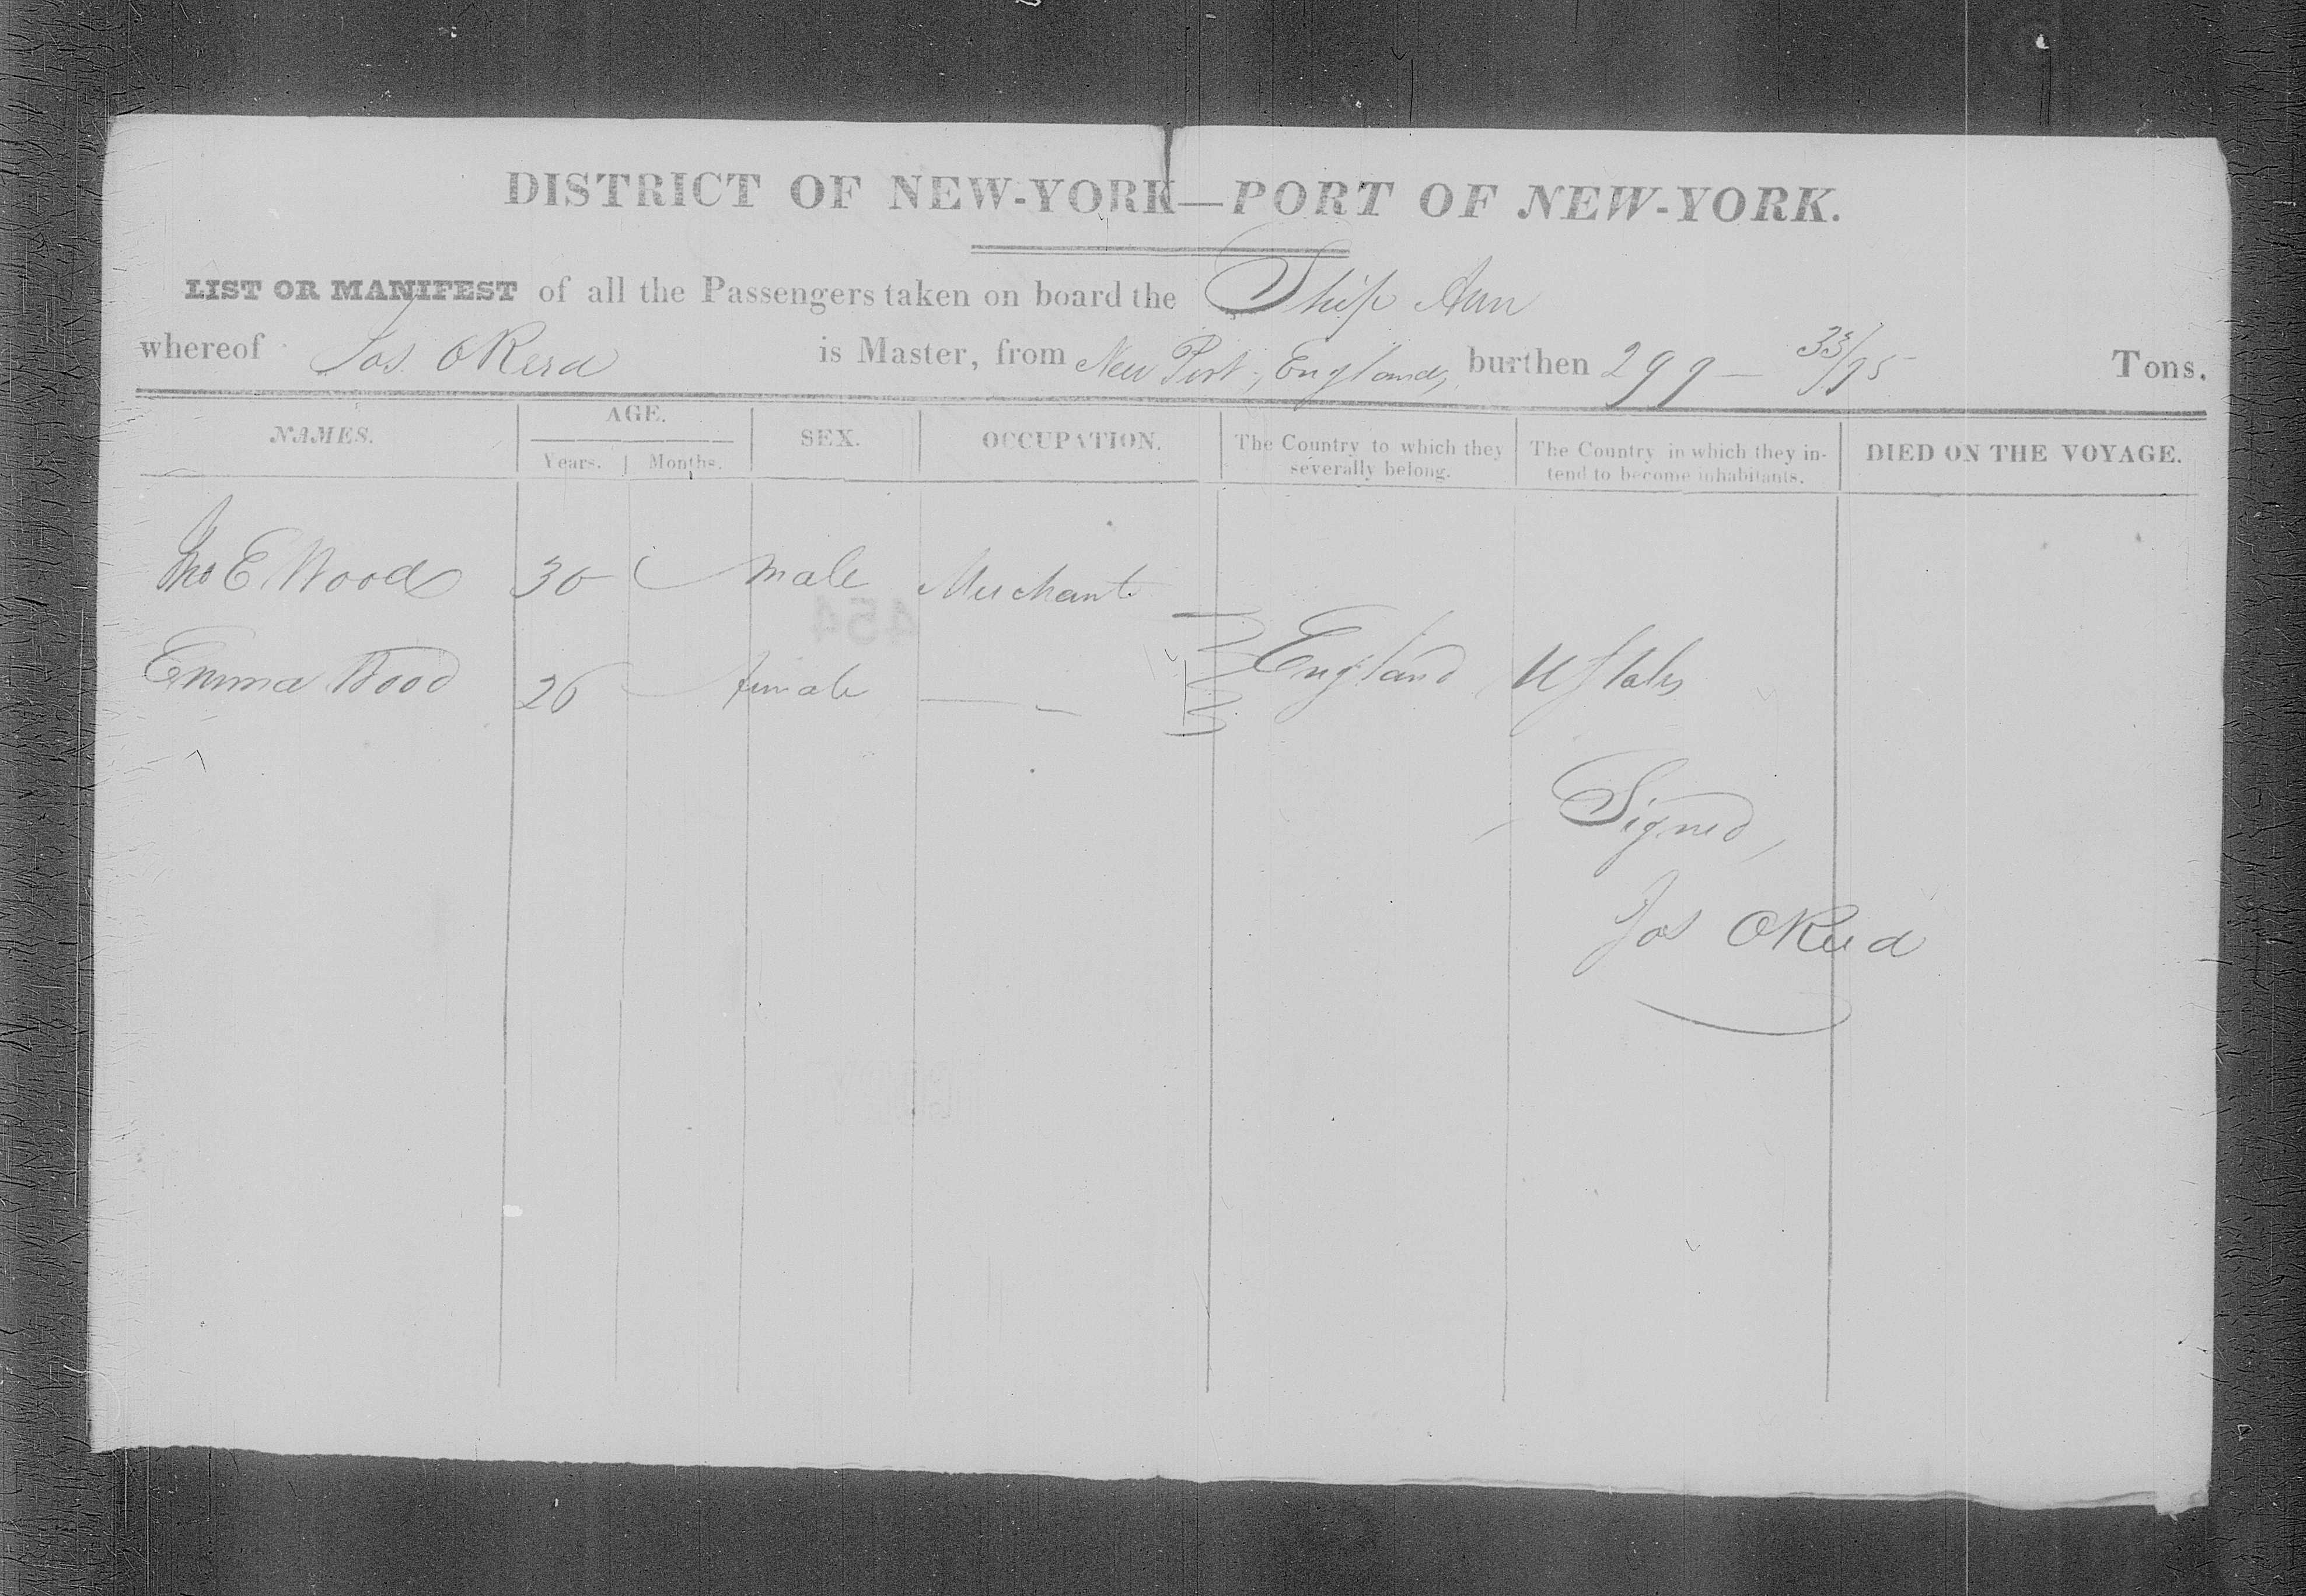 DISTRICT OF NEW-YORK—PORT OF NEW-YORK.
LIST OR MANIFEST of all the Passengers taken on board the Ship Ann
whereof Jas. O Reed is Master, from New Port, England, burthen 299 — 33/95 Tons.
NAMES. AGE. SEX. OCCUPATION. The Country to which they severally belong. The Country in which they in- tend to become inhabitants. DIED ON THE VOYAGE.
Years. Months.
E Wood 30 male Merchant
454
Emma Wood 26 female — - England U States
Signed,
Jas O Reed